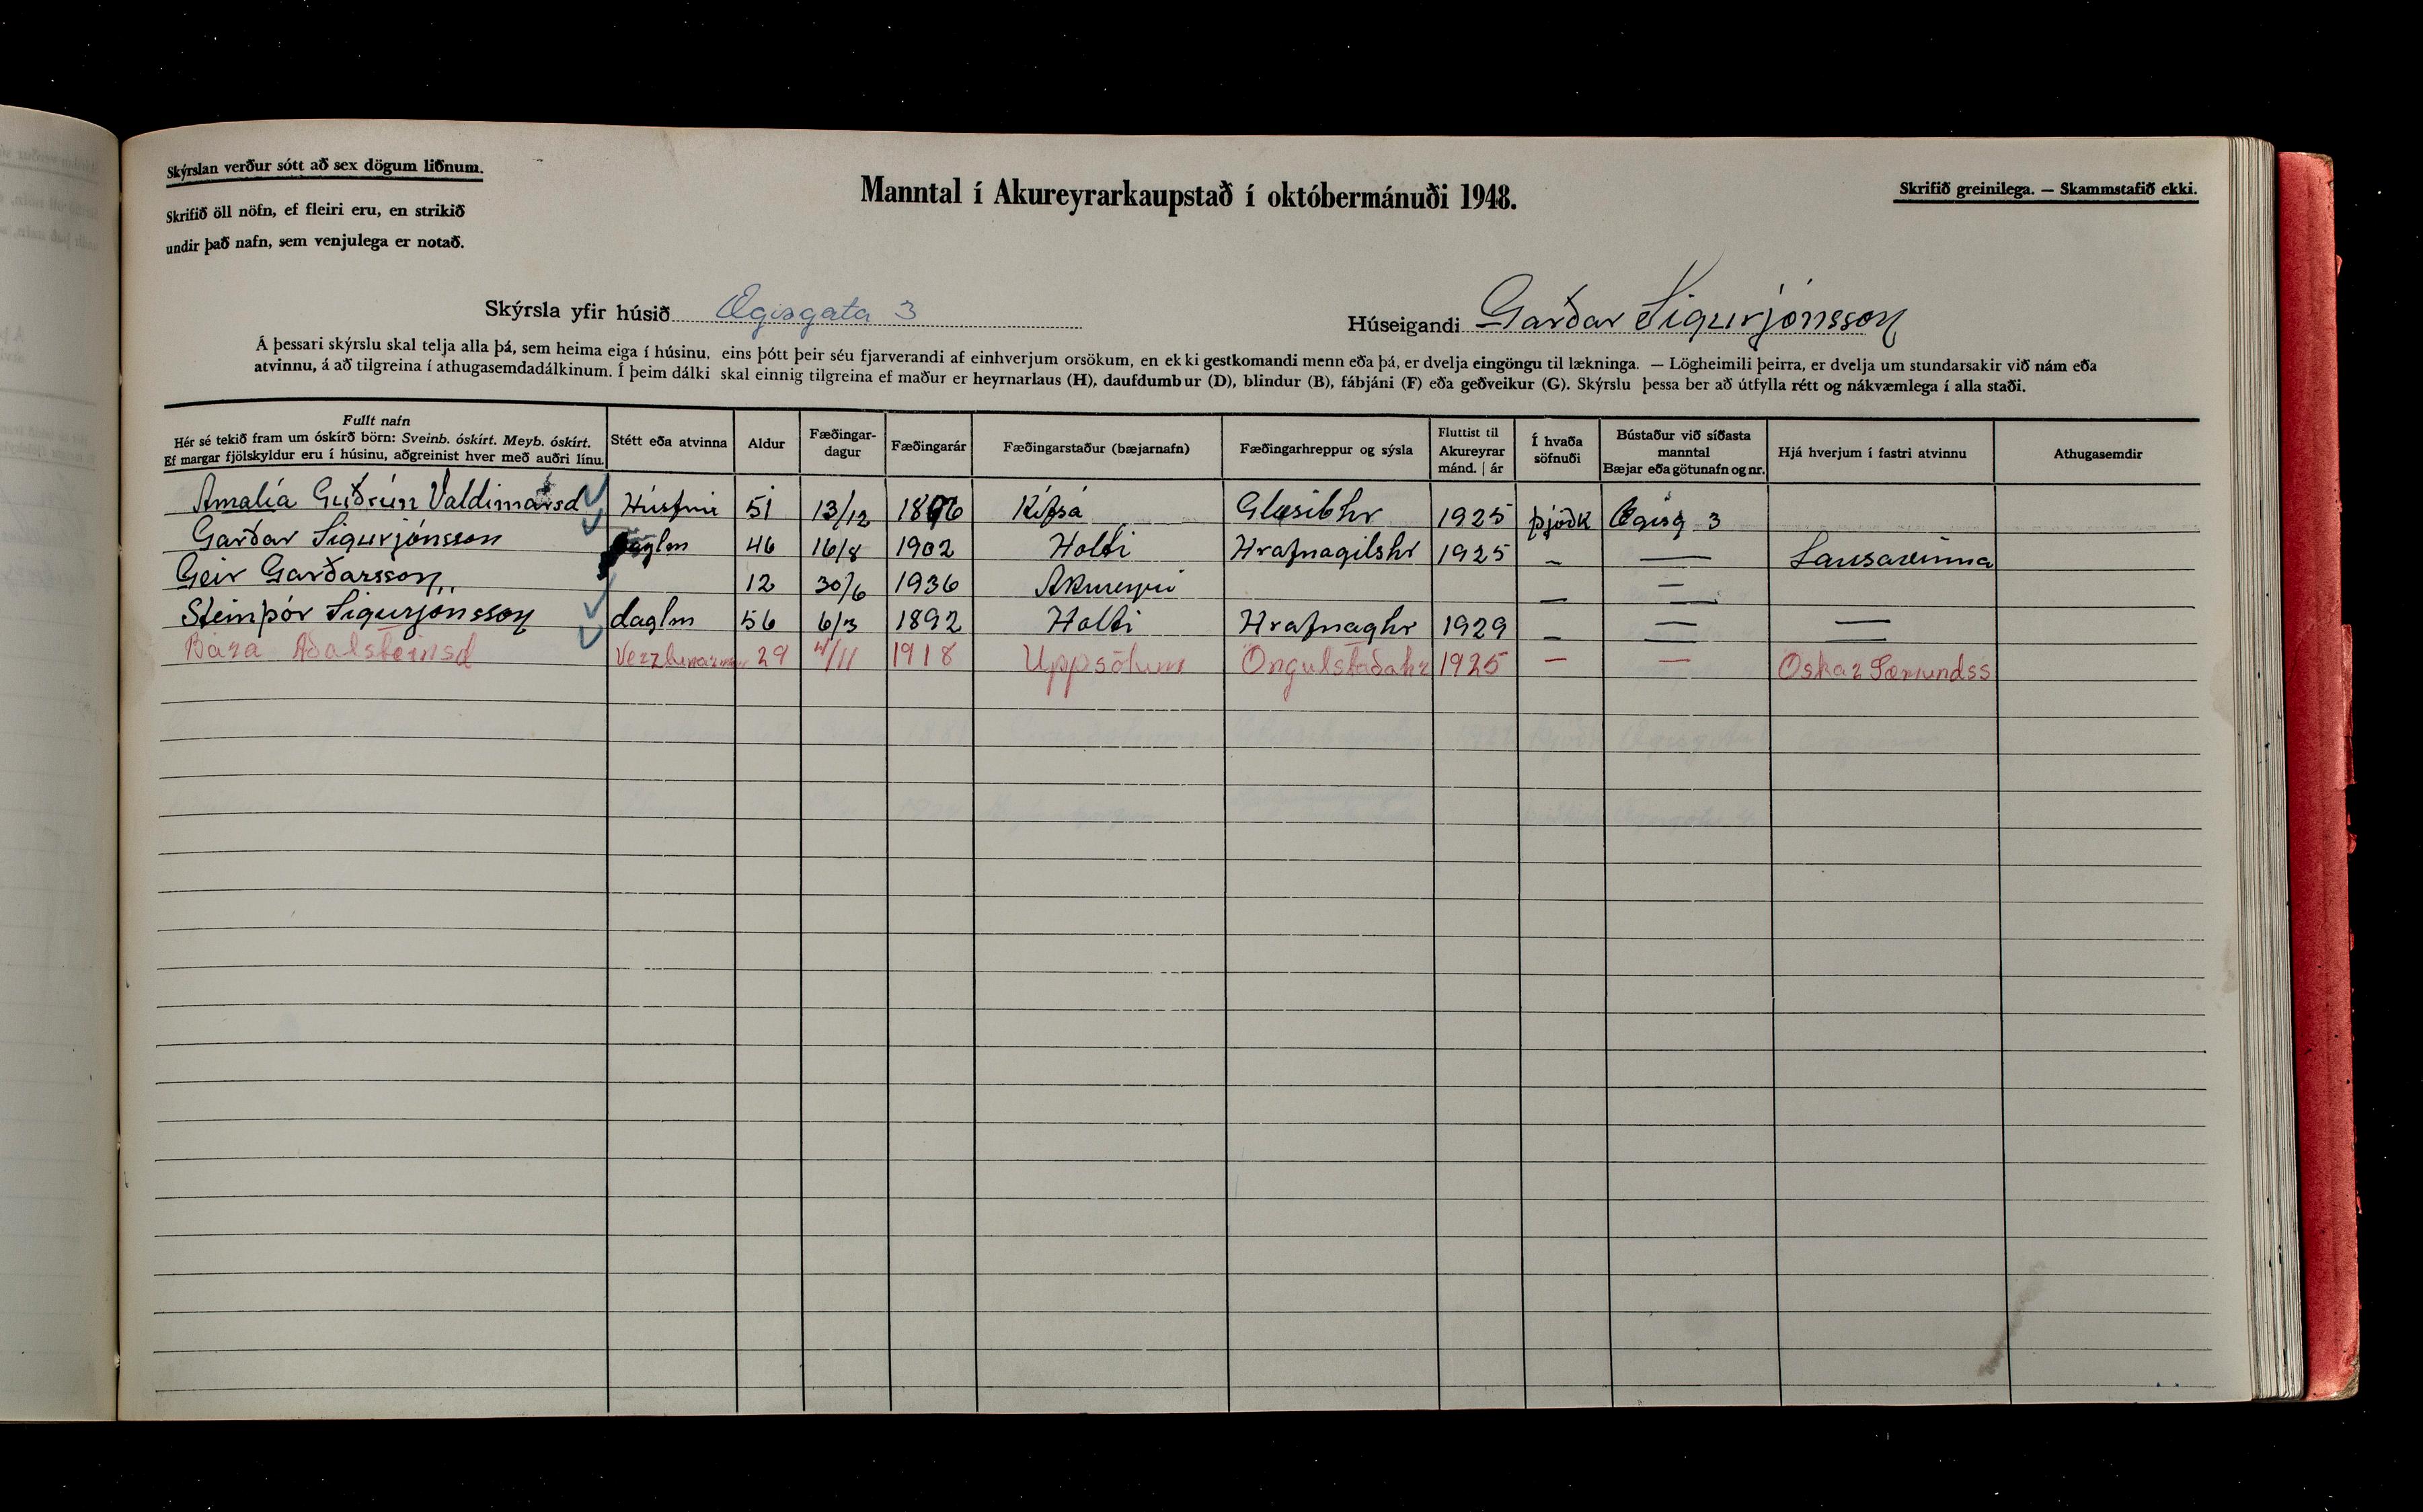 Skýrslan verður sótt að sex dögum liðnum.
Skrifið öll nöfn, ef fleiri eru, en strikið
undir það nafn, sem venjulega er notað.
Manntal í Akureyrarkaupstað í októbermánuði 1948.
Skrifið greinilega. — Skammstafið ekki.
Skýrsla yfir húsið Ægisgata 3
Húseigandi Garðar Sigurjónsson
Á þessari skýrslu skal telja alla þá, sem heima eiga í húsinu, eins þótt þeir séu fjarverandi af einhverjum orsökum, en ekki gestkomandi menn eða þá, er dvelja eingöngu til lækninga. — Lögheimili þeirra, er dvelja um stundarsakir við nám eða
atvinnu, á að tilgreina í athugasemdadálkinum. Í þeim dálki skal einnig tilgreina ef maður er heyrnarlaus (H), daufdumbur (D), blindur (B), fábjáni (F) eða geðveikur (G). Skýrslu þessa ber að útfylla rétt og nákvæmlega í alla staði.
Fullt nafn
Hér sé tekið fram um óskírð börn: Sveinb. óskírt. Meyb. óskírt.
Ef margar fjölskyldur eru í húsinu, aðgreinist hver með auðri línu.
Stétt eða atvinna
Aldur
Fæðingar-
dagur
Fæðingarár
Fæðingarstaður (bæjarnafn)
Fæðingarhreppur og sýsla
Fluttist til
Akureyrar
mánd. | ár
Í hvaða
söfnuði
Bústaður við síðasta
manntal
Bæjar eða götunafn og nr.
Hjá hverjum í fastri atvinnu
Athugasemdir
Amalía Guðrún Valdimarsd Húsfrú 51 13/12 1896 Kífsá Glæsibhr 1925 þjóðk Ægisg 3
Garðar Sigurjónsson daglm 46 16/8 1902 Holti Hrafnagilshr 1925 — — Lausavinna
Geir Garðarsson 12 30/6 1936 Akureyri — —
Steinþór Sigurjónsson daglm 56 6/3 1892 Holti Hrafnaghr 1929 — — —
Bára Aðalsteinsd 29 4/11 1918 Uppsölum Öngulstaðahr 1925 — — Oskar Sæmundss